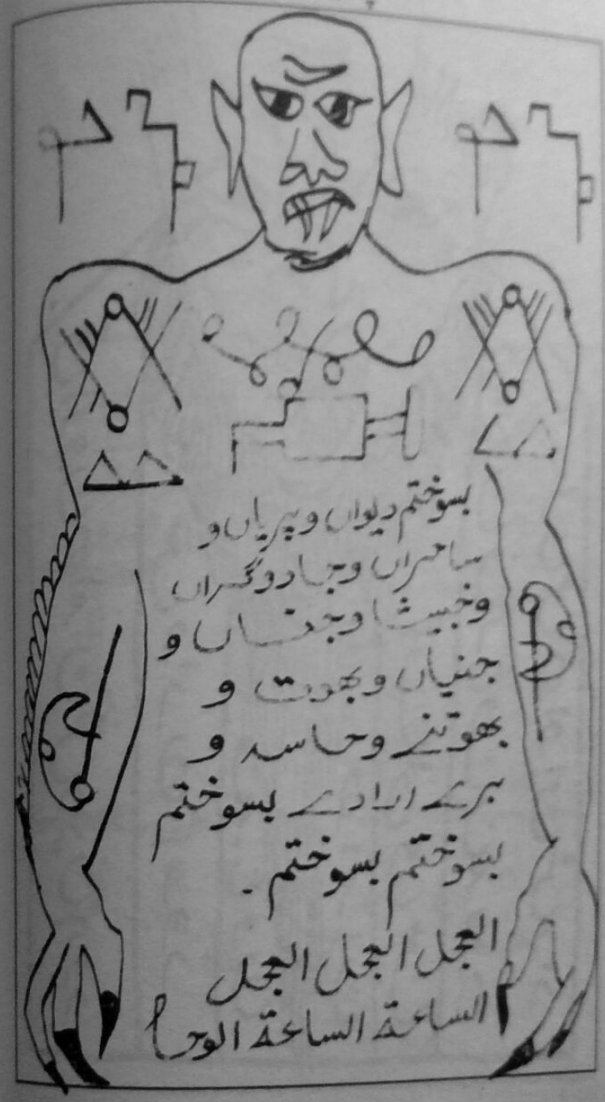 بسوختم دیواں و پریاں و
ساحراں وجادوگراں
وخبیشا وجناں و
جنیاں وبھوت و
بھوتنے وحاسد و
برے ارادے بسوختم
بسوختم بسوختم۔
العجل العجل العجل
الساعة الساعة الوحا